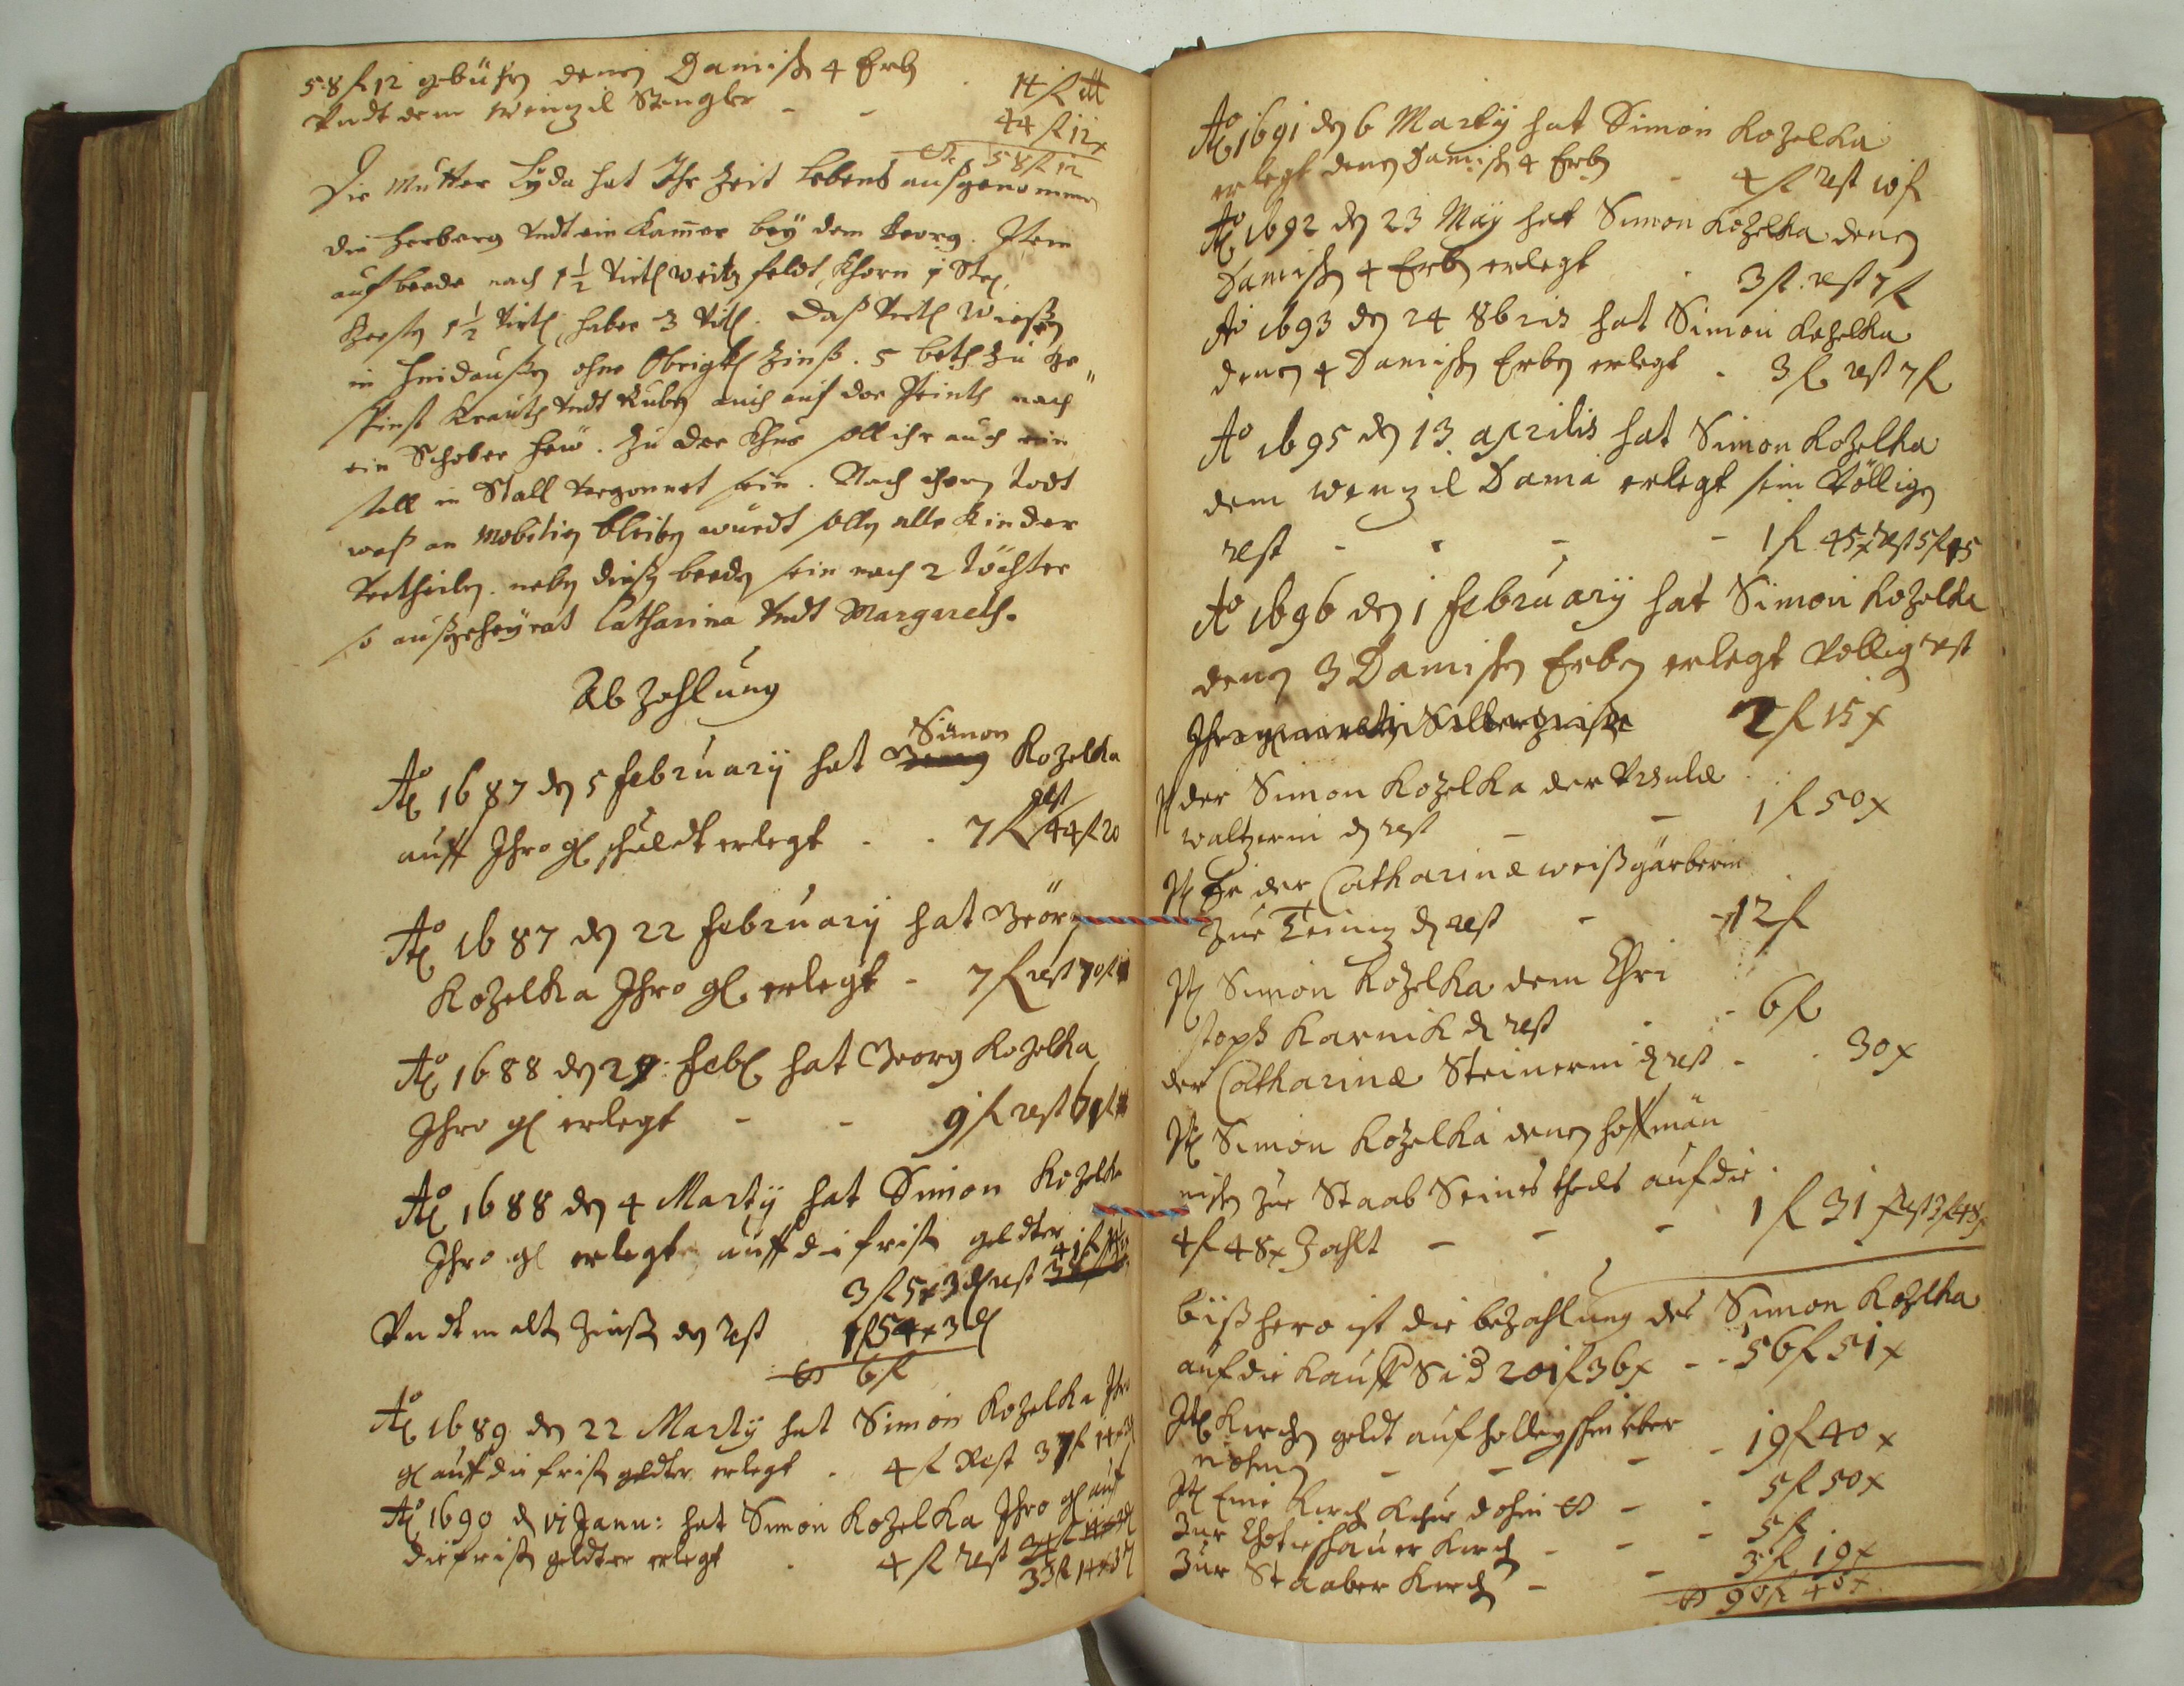 58 f 12 gebühren denen Damisch 4 Erben
Vndt dem Wenzil Stengler - - 14 f
44 f 12 x
58 f 12
Die Mutter Lyda hat Ihr Zeit Lebens außgenommen
die Herberg Vndt ein Kammer bey dem Georg. Item
auf beede nach 1 1/2 Virtl Weitz feldt, Khorn 1 Str.
Gersten 1 1/2 Virtl, Haber 3 Vitl. Daß Virtl Wießen
in ohne Obrigktl Zinß. 5 beth zu
Krauth Vndt Ruben auch auf der nach
ein Schober Heu. Zu der Khue soll ihr auch ein
stell in Stall Vergonnet sein. Nach ihren Todt
waß an Mobilien bleiben würdt sollen alle Kinder
Vertheilen. neben diesen beeden sein noch 2 Töchter
so außgeheyrat Catharina Vndt Margareth.
Abzahlung
Simon
Ao 1687 den 5 february hat Kozelka
auff Ihro gl schuldt erlegt - - 7 f rest 44 f 20
Ao 1687 den 22 february hat Geörg
Kozelka Ihro gl. erlegt - 7 f rest 70 f
Ao 1688 den 29. febl hat Georg Kozelka
Ihro gl erlegt - - 9 f rest 61 f
Ao 1688 den 4 Marty hat Simon Kozelka
Ihro gl erlegt auff die frist geldter
3 f 5 x 3 d rest 41 f
Vndt in alt Zinß den Rest 1 f 54 x 3 d
6 f
Ao 1689 den 22 Marty hat Simon Kozelka Ihro
gl auff die frist geldter erlegt - 4 f Rest 37 f 14 x 3 d
Ao 1690 d Janu: hat Simon Kozelka Ihro gl auf
die frist geldter erlegt - 4 f rest
33 f 14 x 3 d
Ao 1691 den 6 Marty hat Simon Kozelka
erlegt denen Damisch 4 Erben - 4 f rest 10 f
Ao 1692 den 23 May hat Simon Kozelka denen
Damischen 4 Erben erlegt - 3 f. rest 7 f
Ao 1693 den 24 8bris hat Simon Kozelka
denen 4 Damischen Erben erlegt - 3 f rest 7 f
Ao 1695 den 13 aprilis hat Simon Kozelka
dem Wenzil Dama erlegt sein Völligen
rest - - - - 1 f 45 x rest 5 f 15
Ao 1696 den 1 february hat Simon Kozelka
denen 3 Damischen Erben erlegt Völlig rest
2 f 15 x
It der Simon Kozelka der Vrsula
Waltzerin den rest - - 1 f 50 x
It Er der Catharina weißgärberin
zur Teinitz den rest - - 12 f
It Simon Kozelka dem Chri
stoph Karnik den rest - - 6 f
der Catharina Steinerin den rest - - 30 x
It Simon Kozelka denen Hoffmän
nischen zur Staab Seines theils auf die
4 f 48 x Zahlt - - - 1 f 31 rest 3 f
bißhero ist die bezahlung des Simon Kozelka
auf die Kauff 201 f 36 x - - 56 f 51 x
It Kirchen geldt auf über
nohmen - - - - 19 f 40 x
It Eine Kirch Khue dohin - - 5 f 50 x
Zur Chotieschauer Kirch - - - 5 f
Zur Staaber Kirch - - 3 f 19 x
90 f 40 x